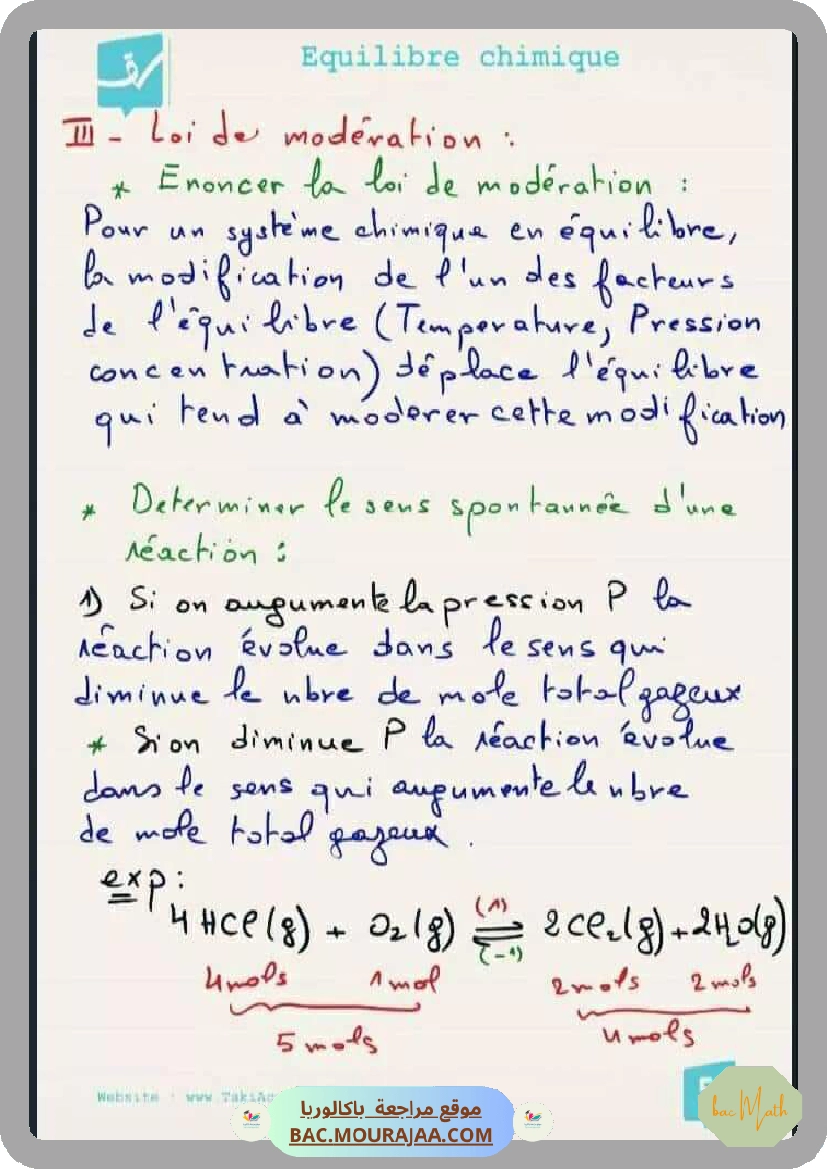 Equilibre chimique
III - Loi de modération :
* Enoncer la loi de modération :
Pour un système chimique en équilibre,
la modification de l'un des facteurs
de l'équilibre (Température, Pression
concentration) déplace l'équilibre
qui tend à moderer cette modification
* Determiner le sens spontannée d'une
réaction :
1) Si on augumente la pression P la
réaction évolue dans le sens qui
diminue le nbre de mole total gazeux
* Si on diminue P la réaction évolue
dans le sens qui augumente le nbre
de mole total gazeux .
exp :
4 HCl (g) + O₂ (g) (1) ⇌ (-1) 2 Cl₂ (g) + 2H₂O(g)
4 mols 1 mol 2 mols 2 mols
5 mols 4 mols
Website : www
موقع مراجعة باكالوريا
BAC.MOURAJAA.COM
bac Math